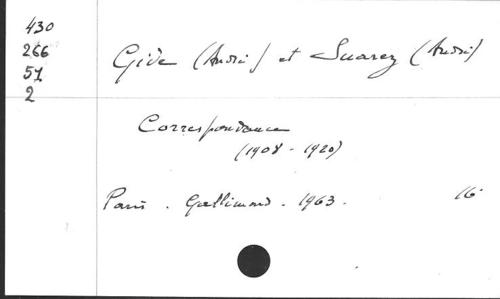 430
266
57
2
Gide (André) et Suarez (André)
Correspondance
(1908 - 1920)
Paris . Gallimard . 1963 . 16°